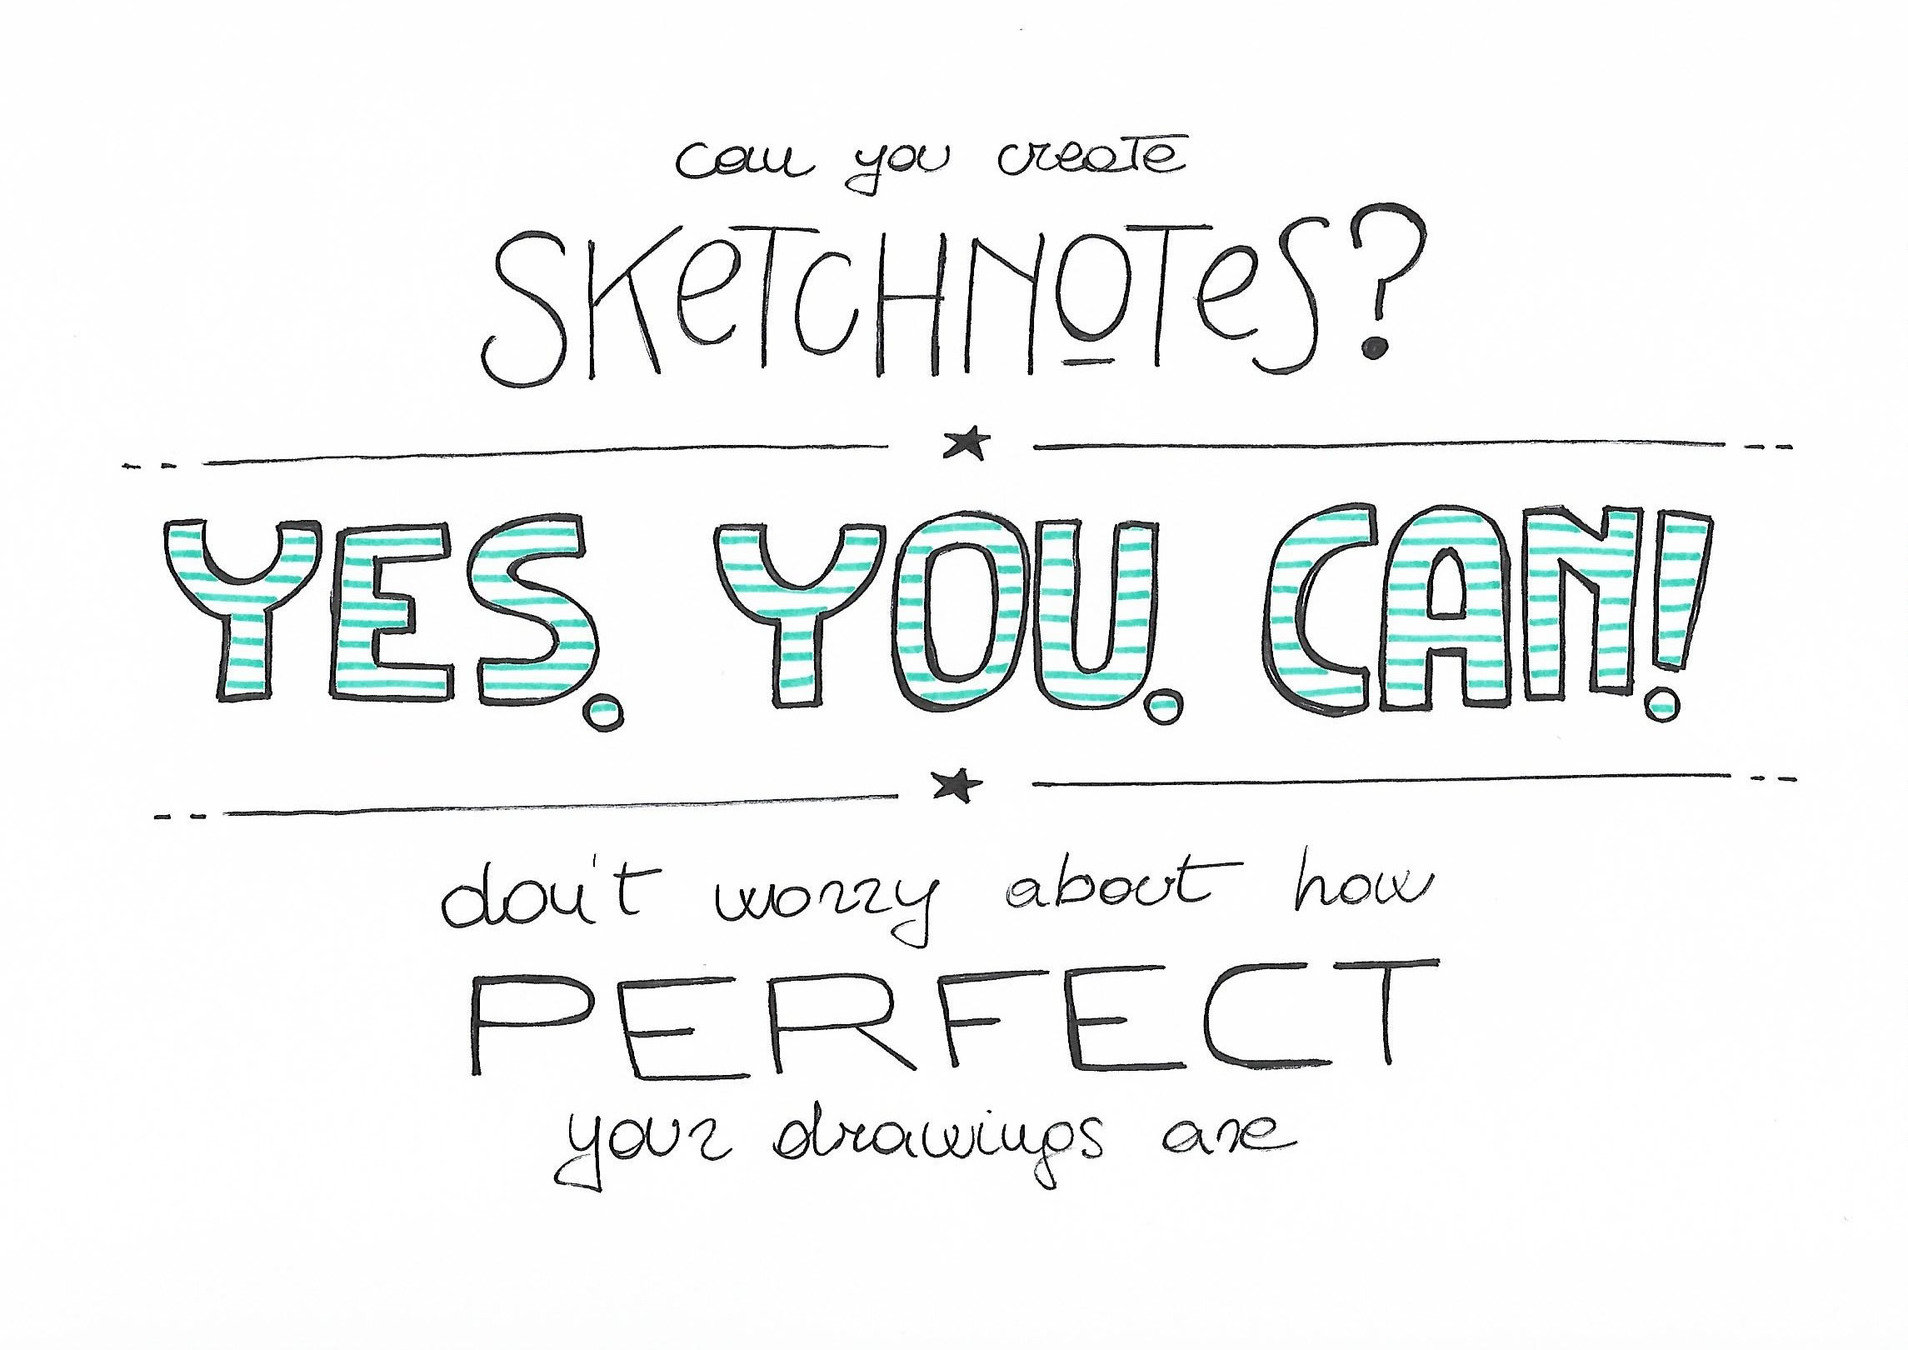 can you create
SKeTCHNOTeS?
YES. YOU. CAN!
don't worry about how
PERFECT
your drawings are